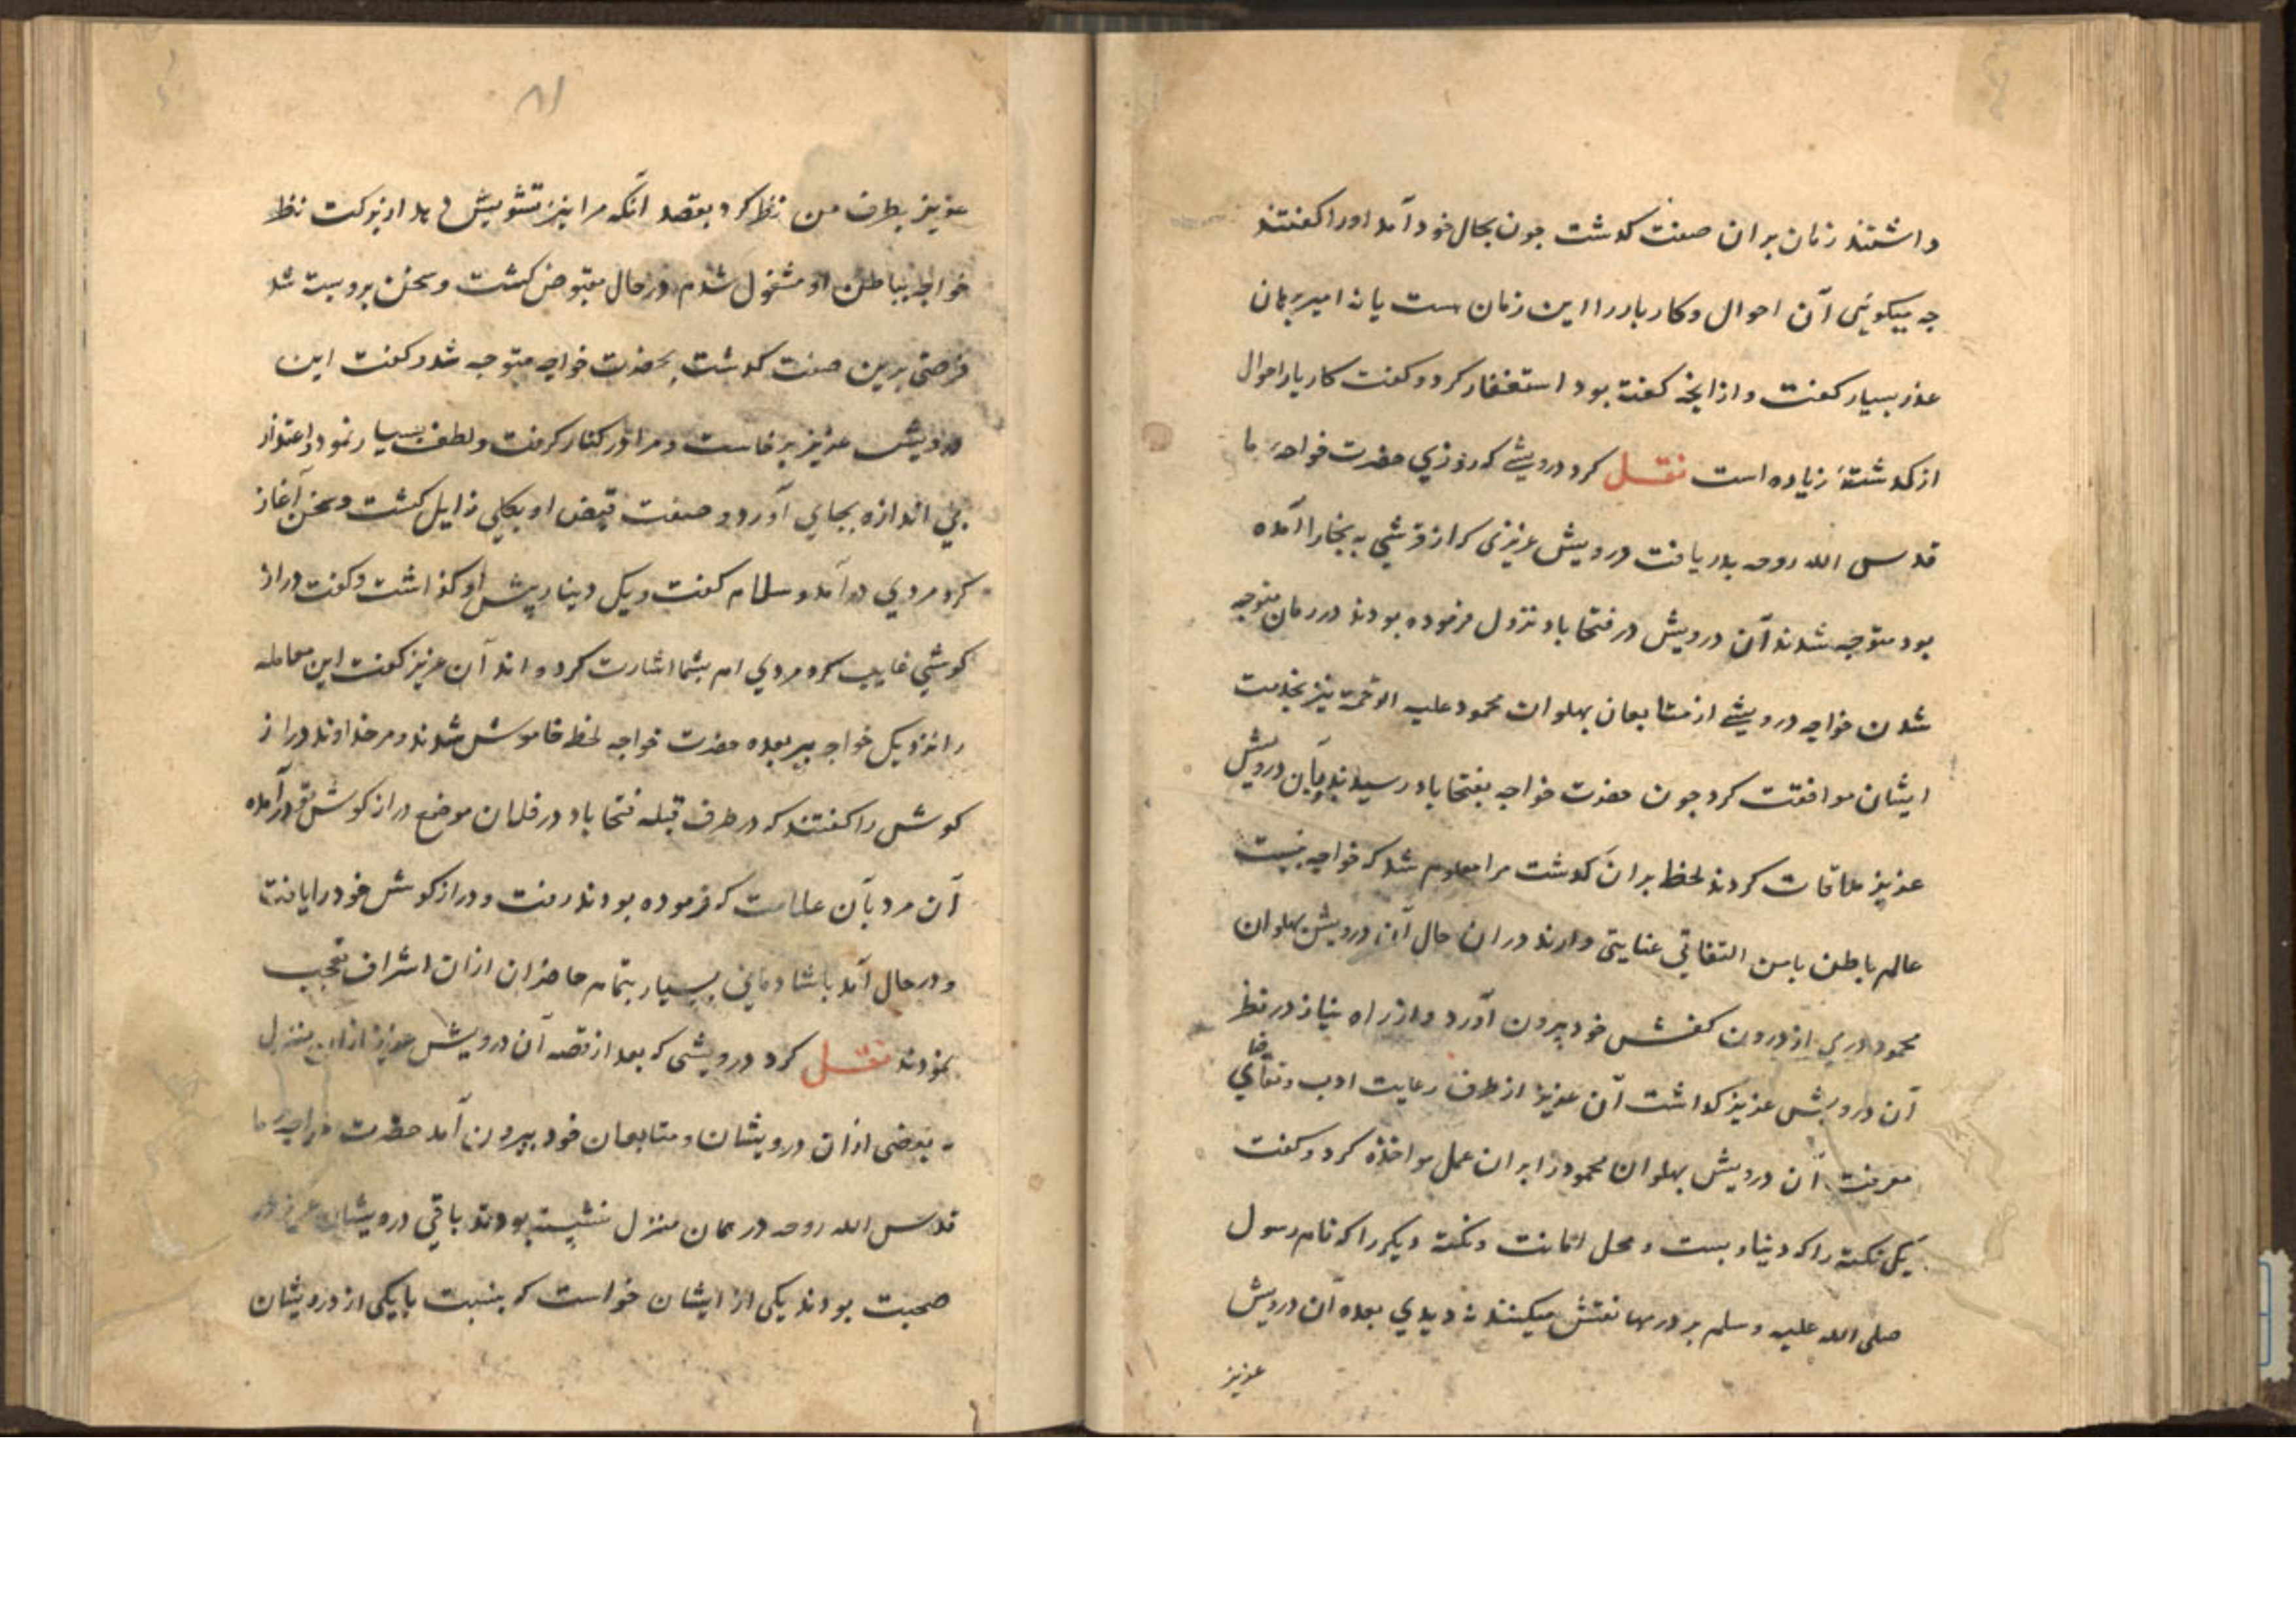 داشتند زمان بران صفت کدشت جون بحال خود آمد اورا کفتند
جه میکوئی آن احوال و کار بار را این زمان هست یا نه امیر برهان
عذر بسیار کفت و از انجه کفته بود استغفار کرد و کفت کار بار احوال
از کدشتهٔ زیاده است نقل کرد درویشے که روزي حضرت خواجهٔ ما
قدس الله روحه بدریافت درویش عزیزی که از قرشي به بخارا آمده
بود متوجه شدند آن درویش در فتحاباد نزول فرموده بودند در زمان متوجه
شدن خواجه درویشے از متابعان پهلوان محمود علیه الرحمة نیز بخدمت
ایشان موافقت کرد جون حضرت خواجه بفتحاباد رسیدند و بآن درویش
عزیز ملاقات کردند لحظ بران کدشت مرا معلوم شد که خواجه نسبت
عالم باطن بامن التفاتي عنایتي دارند دران حال آن درویش پهلوان
محمود درمي از درون کفش خود بیرون آورد و از راه نیاز در نظر
آن درویش عزیز کداشت آن عزیز از طرف رعایت ادب و تقاضاي
معرفت آن درویش پهلوان محمود را بران عمل مواخذه کرد و کفت
یکي نکته را که دیناربست و محل امانت و نکته دیکر را که نام رسول
صلی الله علیه و سلم بر درمها نقش میکنند نه دیدي بعده آن درویش
عزیز
۸۱
عزیز بطرف من نظر کرد بقصد آنکه مرا نیز تشویش دهد از برکت نظر
خواجه بباطن او مشغول شدم در حال مقبوض کشت و سخن برو بسته شد
فرصتي برین صفت کدشت بحضرت خواجه متوجه شد و کفت این
درویش عزیز برخاست و مرا در کنار کرفت و لطف بسیار نمود و اعتذار
بي اندازه بجاي آورد و صفت قبض او بکلي زایل کشت و سخن آغاز
کرد مردي در آمد و سلام کفت و یک دینار پیش او کذاشت و کفت دراز
کوشي غایب کرده مردي ام بشما اشارت کرده اند آن عزیز کفت این معامله
را نزدیک خواجه ببر بعده حضرت خواجه لحظ خاموش شدند و مر خداوند دراز
کوش را کفتند که در طرف قبله فتحاباد در فلان موضع دراز کوش تو در آمده
آن مرد بآن علامت که فرموده بودند رفت و دراز کوش خود را یافت
و در حال آمد با شادماني بسیار بتمام حاضران ازان اشراف تعجب
نمودند نقل کرد درویشي که بعد از قصه آن درویش عزیز ازان منزل
به بعضی ازان درویشان و متابعان خود بیرون آمد حضرت خواجهٔ ما
قدس الله روحه در همان منزل نشیسته بودند باقي درویشان عزیز در
صحبت بودند یکی از ایشان خواست که بنسبت با یکی از درویشان